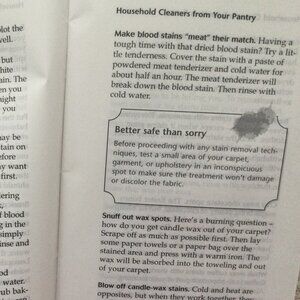 plot the
well.
but
white
ain. The
en you
night
you
may be
tain on
efore
ay want
first.
dering
s of
f blood
ing in the
simply
inse and
d
water.
rub bak-
Household Cleaners from Your Pantry
Make blood stains "meat" their match. Having a
tough time with that dried blood stain? Try a lit-
tle tenderness. Cover the stain with a paste of
powdered meat tenderizer and cold water for
about half an hour. The meat tenderizer will
break down the blood stain. Then rinse with
cold water.
Better safe than sorry
Before proceeding with any stain removal tech-
niques, test a small area of your carpet,
garment, or upholstery in an inconspicuous
spot to make sure the treatment won't damage
or discolor the fabric.
Snuff out wax spots. Here's a burning question –
how do you get candle wax out of your carpet?
Scrape off as much as possible first. Then lay
some paper towels or a paper bag over the
stained area and press with a warm iron. The
wax will be absorbed into the toweling and out
of your carpet.
Blow off candle-wax stains. Cold and heat are
opposites, but when they work together they